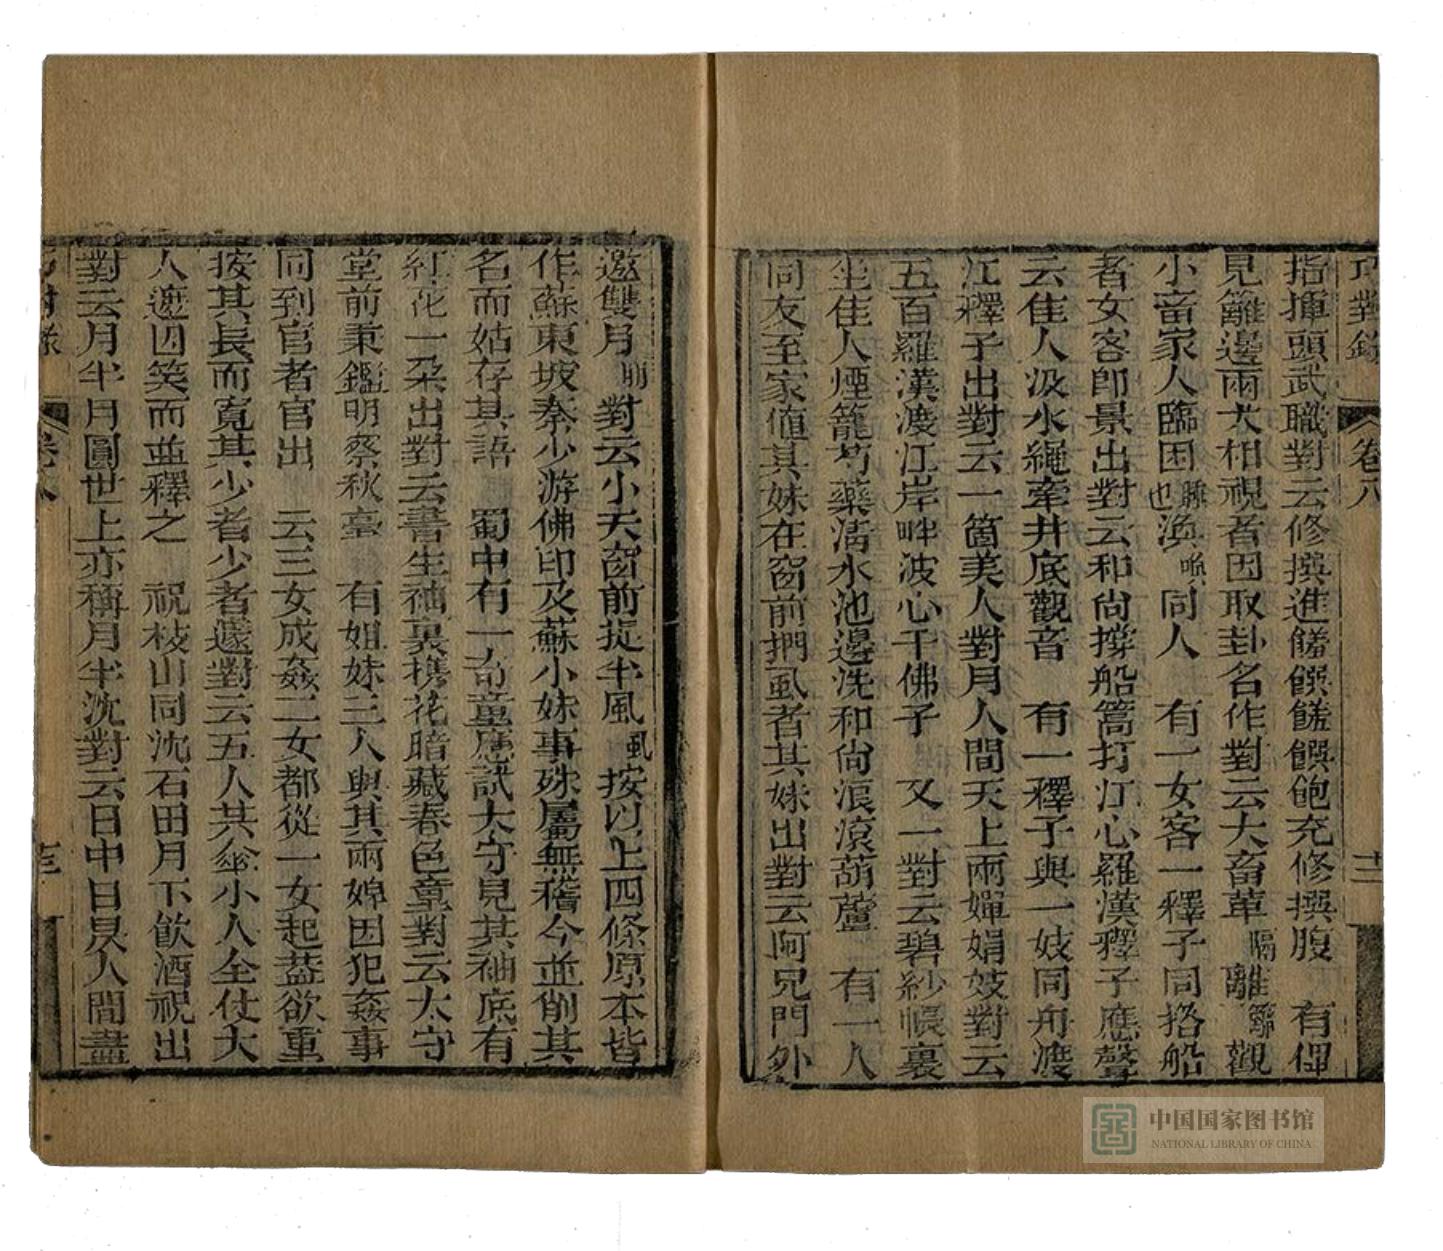 巧對錄 卷八 十二
指揮頭武職對云修撰進饈饌饈饌飽充修撰腹 有俾
見籬邊兩犬相視者因取卦名作對云大畜革隔離籬觀
小畜家人臨困也渙喚同人 有一女客一釋子同搭船
者女客即景出對云和尚撐船篙打江心羅漢釋子應聲
云佳人汲水繩牽井底觀音 有一釋子與一妓同舟渡
江釋子出對云一箇美人對月人間天上兩嬋娟妓對云
五百羅漢渡江岸畔波心千佛子 又一對云碧紗帳裏
坐佳人煙籠芍藥清水池邊洗和尚浪滾葫蘆 有一人
同友至家値其妹在窗前捫虱者其妹出對云阿兄門外
邀雙月朋對云小天窗前捉半風虱按以上四條原本皆
作蘇東坡秦少游佛印及蘇小妹事殊屬無稽今並削其
名而姑存其語 蜀中有一奇童應試大守見其袖底有
紅花一朶出對云書生袖裏携花暗藏春色童對云太守
堂前秉鑑明察秋毫 有姐妹三人與其兩婢因犯姦事
同到官者官出 云三女成姦二女都從一女起葢欲重
按其長而寬其少者少者遽對云五人共傘小人全仗大
人遮因笑而並釋之 祝枝山同沈石田月下飲酒祝出
對云月半月圓世上亦稱月半沈對云日中日昃人間盡
巧對錄 卷八 十三
中国国家图书馆
NATIONAL LIBRARY OF CHINA